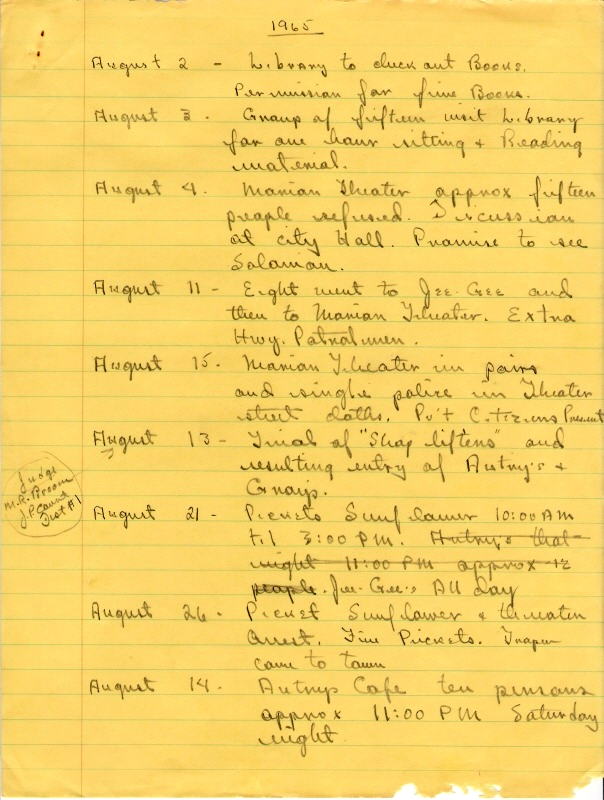 1965
August 2 - Library to check out Books.
Permission for five Books.
August 3. Group of fifteen visit Library
for one hour sitting + Reading
material.
August 4. Marian Theater approx fifteen
people refused. Discussion
at city Hall. Promise to see
Solomon.
August 11 - Eight went to Jee-Gee and
then to Marian Theater. Extra
Hwy. Patrolmen.
August 15. Marian Theater in pairs
and singles police in Theater
street cloths. Pv't Citizens Present
August 13 - Trial of "Shop lifters" and
resulting entry of Autry's +
Gray's.
Judge
M.R. Broom
J.P. Court
Dist #1
August 21 - Pickets Sunflower 10:00 AM
til 3:00 P.M. Autry's that
night 11:00 PM approx 12
people. Jee-Gee's All day
August 26 - Picket Sunflower + theater
arrest. Five Pickets.
came to town
August 14. Autrys Cafe ten persons
approx 11:00 PM Saturday
night.